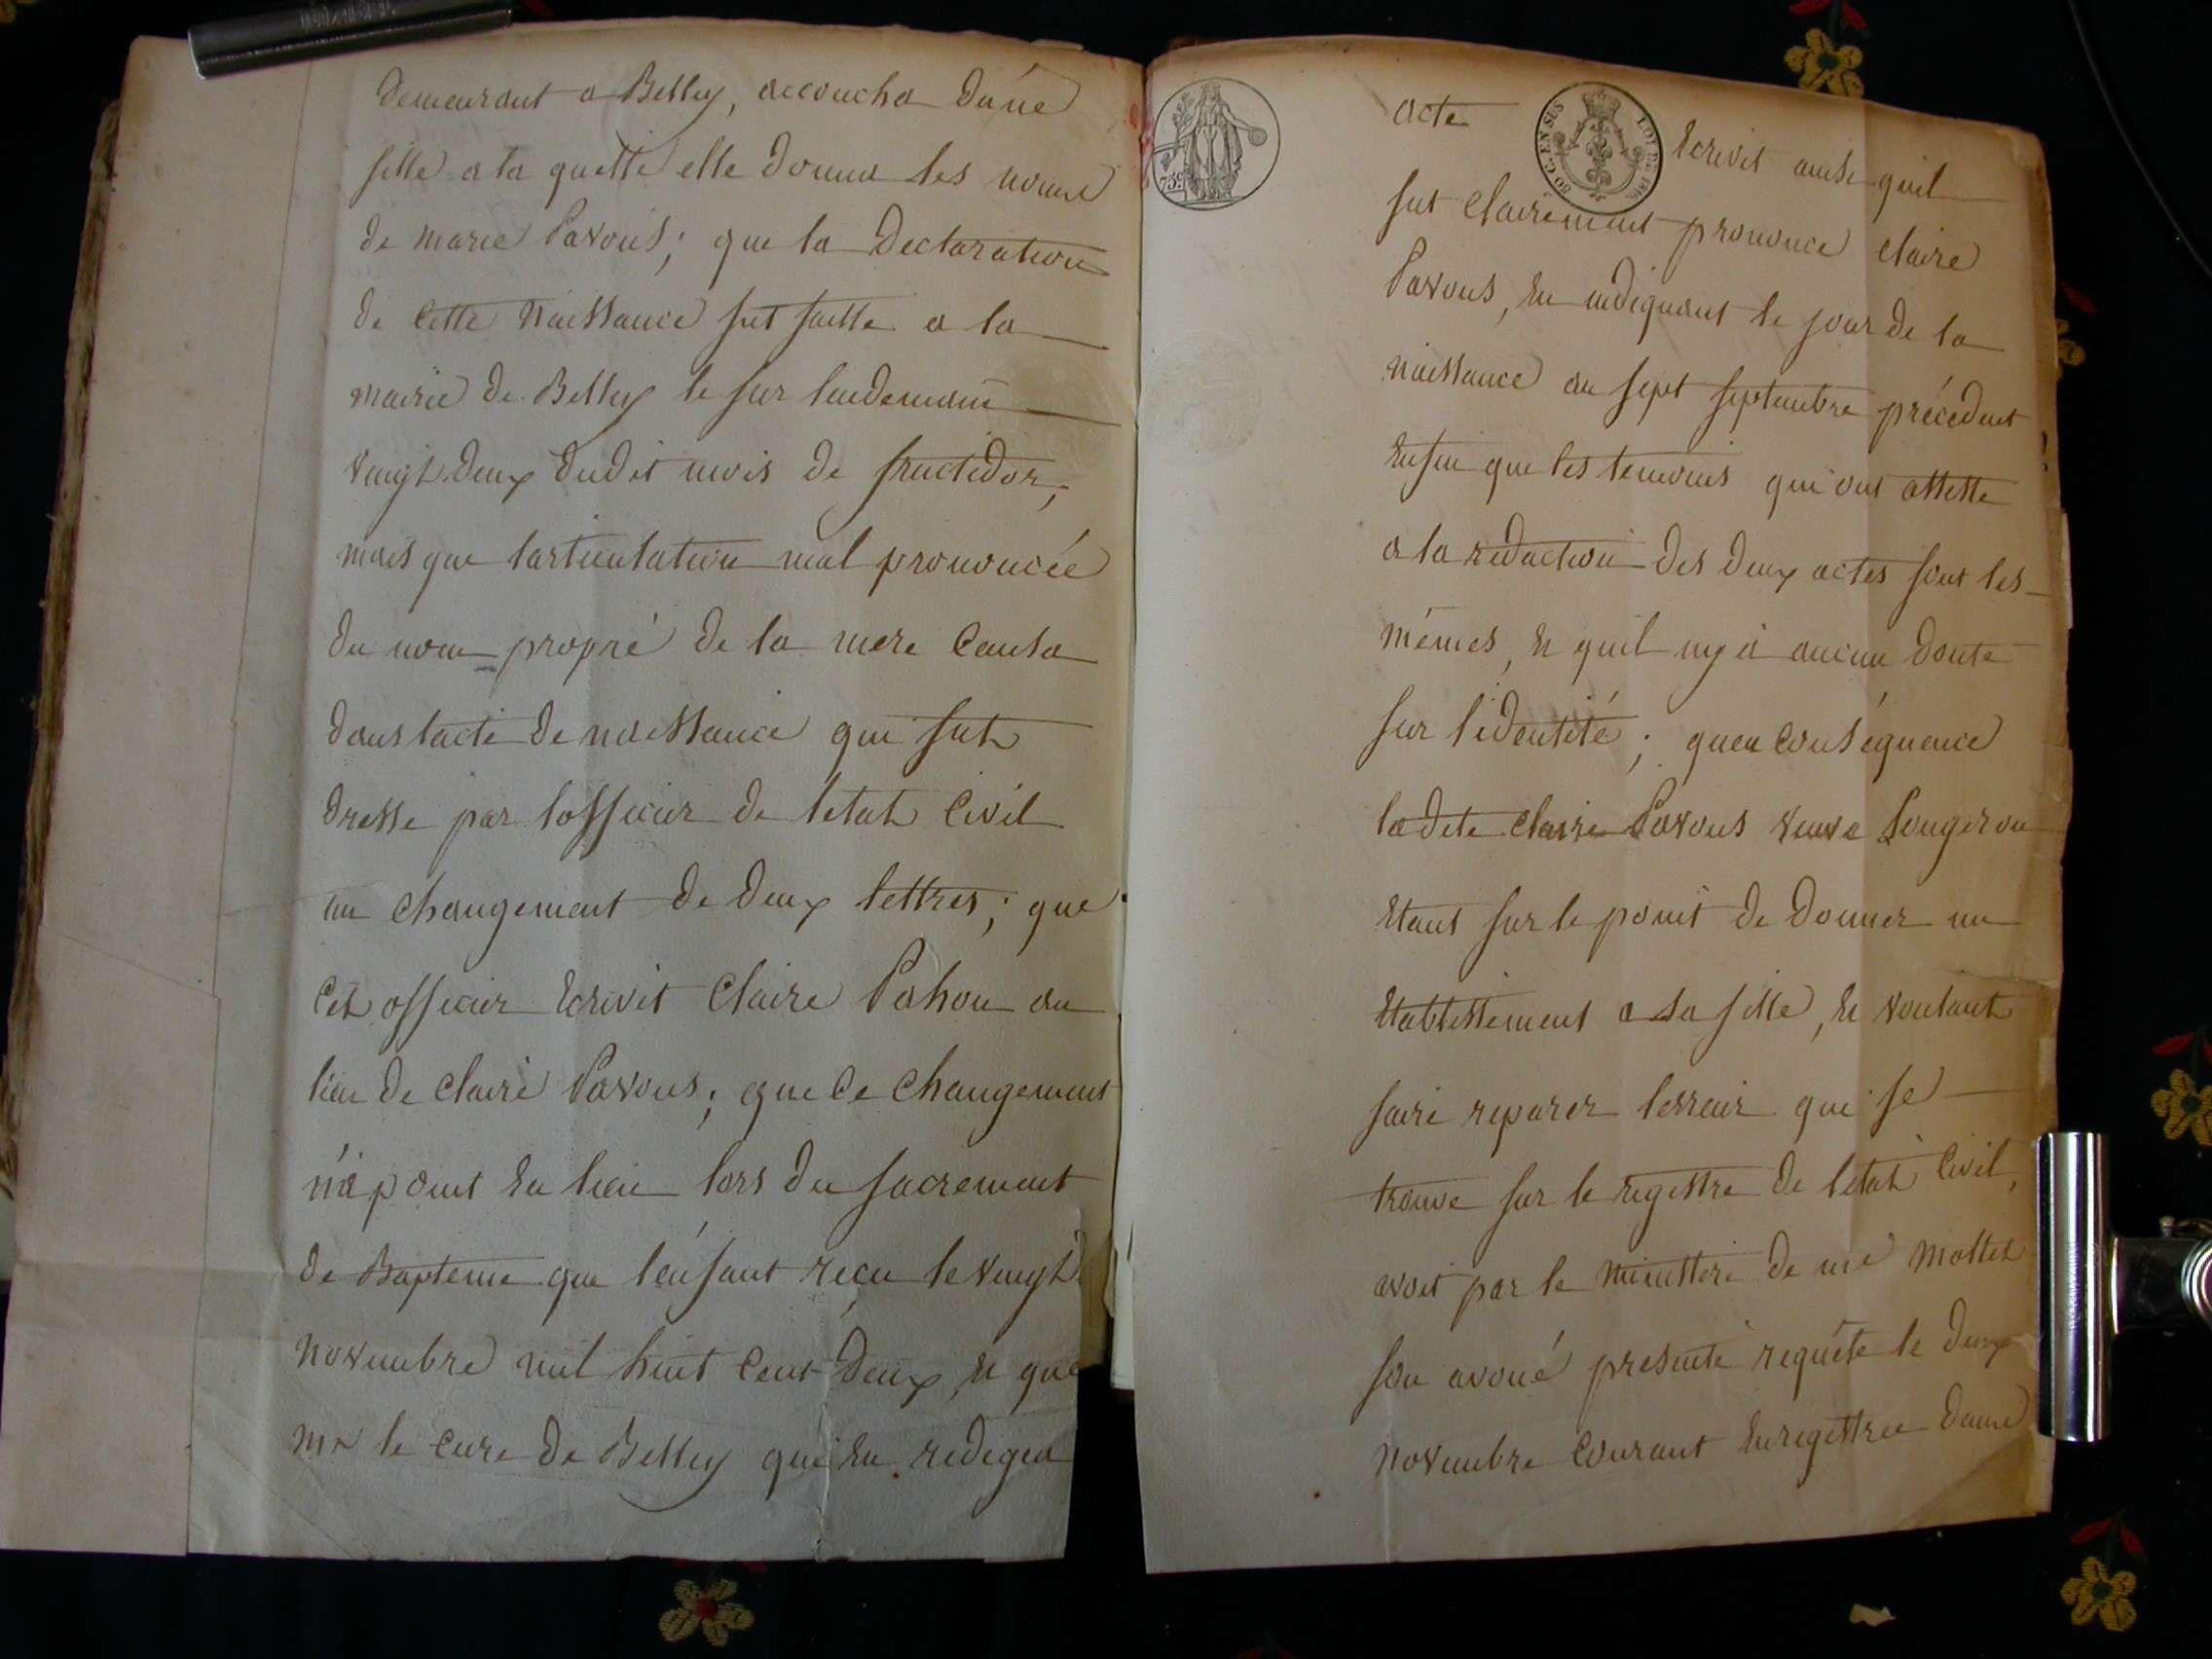 demeurant a Belley, accoucha dune
fille a la quelle elle donna les noms
de marie Pavous; que la Declaration
de cette Naissance fut faitte a la
mairie de Belley le sur lendemain
vingt deux dudit mois de fructidor;
mais que l'articulation mal prononcée
du nom propre de la mere causa
dans l'acte de naissance qui fut
dresse par lofficier de letat Civil
un changement de deux lettres; que
Cet officier Ecrivit Claire Pahon au
lieu de Claire Pavous; que ce changement
n'a point Eu lieu lors du sacrement
de Bapteme que l'enfant reçu le vingt
novembre mil huit cent deux, Et que
mr le cure de Belley qui En redigea
75c
acte
50 C. EN SUS
LOI DE 18
Ecrivit ainsi quil
fut clairement prononce claire
Pavous, En indiquant le jour de la
naissance au sept septembre précédent
Enfin que les temoins qui ont assiste
a la redaction des deux actes sont les
mêmes, Et quil ny a aucun doute
sur l'identité; quen conséquence
ladite claire Pavous veuve Longeron
Etant sur le point de donner un
Etablissement a sa fille, Et voulant
faire reparer lerreur qui se
trouve sur le registre de l'etat Civil,
avoit par le ministere de me mollet
son avoué presenté requête le deux
novembre courant Enregistree dune